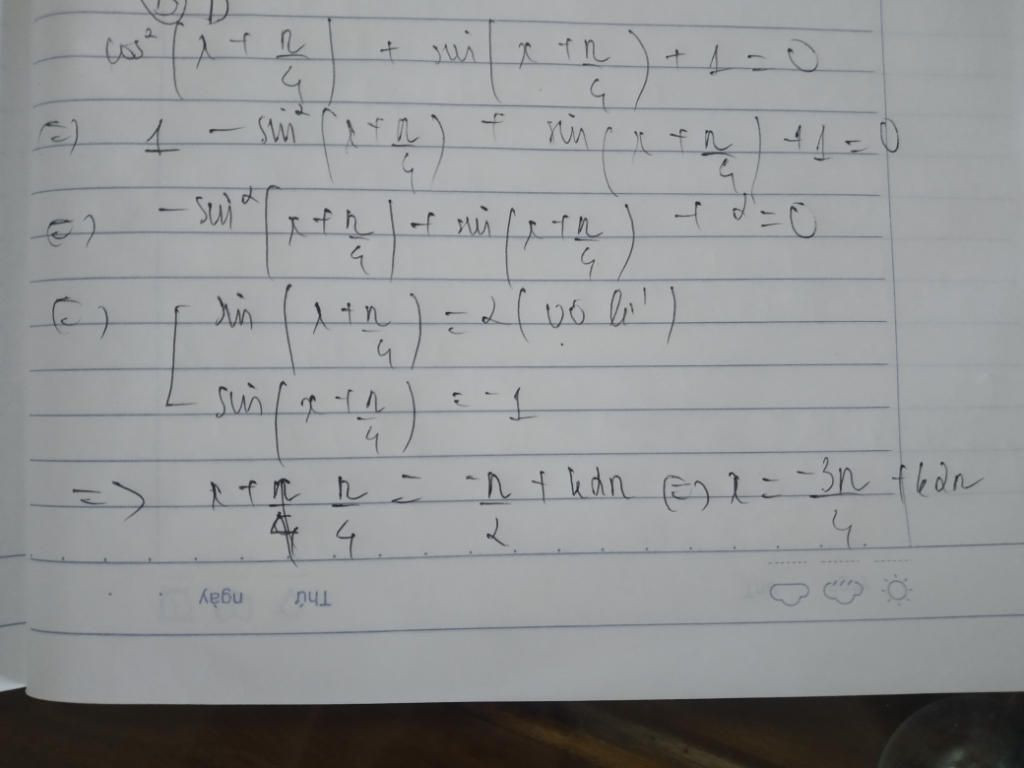 cos²(x + π/4) + sin(x + π/4) + 1 = 0
(=) 1 - sin²(x + π/4) + sin(x + π/4) + 1 = 0
(=) - sin²(x + π/4) + sin(x + π/4) + 2 = 0
(=) [ sin(x + π/4) = 2 (vô lí)
sin(x + π/4) = -1
=> x + π/4 = -π/2 + k2π (=) x = -3π/4 + k2π
Thứ ngày